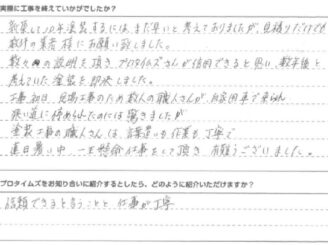 実際に工事を終えていかがでしたか?
新築して10年塗装するには、まだ早いと考えておりましたが、見積りだけでも
数件の業者様にお願い致しました。
数々の説明を頂き プロタイムズさんが信用できると思い、数年後と
考えていた塗装を即決しました。
工事初日、足場工事のため数人の職人さんが、自家用車で来られ
狭い道に停められたのには驚きましたが
塗装工事の職人さんは、言葉遣いも作業も丁寧で
連日暑い中、一生懸命仕事をして頂き 有難うございました。
プロタイムズをお知り合いに紹介するとしたら、どのように紹介いただけますか?
信頼できると言うことと 仕事が丁寧